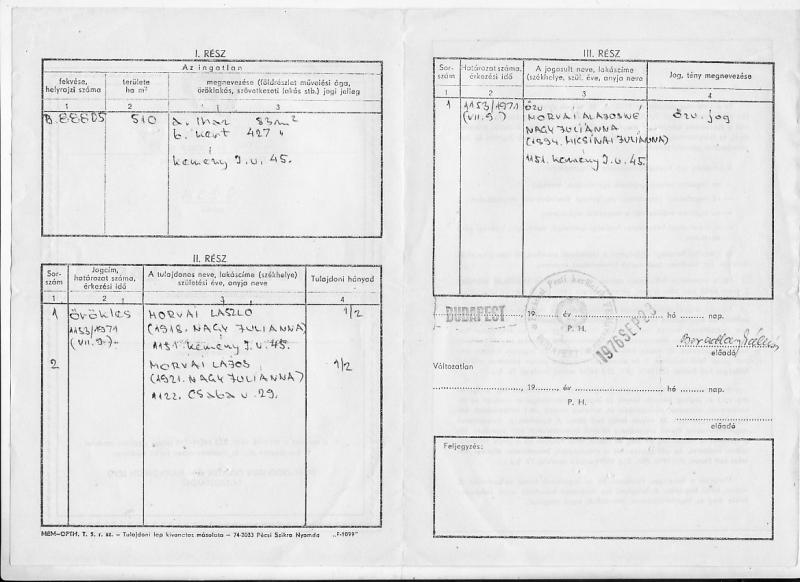 I. RÉSZ
Az ingatlan
fekvése, helyrajzi száma
területe ha m²
megnevezése (földrészlet művelési ága, öröklakás, szövetkezeti lakás stb.) jogi jelleg
1 2 3
B.88805 510 a. lház 83 m²
b. kert 427 "
Kemény J. u. 45.
II. RÉSZ
Sorszám
Jogcím, határozat száma, érkezési idő
A tulajdonos neve, lakáscíme (székhelye) születési éve, anyja neve
Tulajdoni hányad
1 2 3 4
1 öröklés MORVAI LÁSZLÓ 1/2
1153/1971 (1918. NAGY JULIANNA)
(VII.9.) 1151. Kemény J. u. 45.
2 MORVAI LAJOS 1/2
(1921. NAGY JULIANNA)
1122. Csaba u. 29.
MÉM-OFTH. T. 5. r. sz. – Tulajdoni lap kivonatos másolata – 74-3033 Pécsi Szikra Nyomda „F-1099"
III. RÉSZ
Sorszám
Határozat száma, érkezési idő
A jogosult neve, lakáscíme (székhelye, szül. éve, anyja neve
Jog, tény megnevezése
1 2 3 4
1 1153/1971 özv.
(VII.9.) MORVAI ALAJOSNÉ özv. jog
NAGY JULIÁNNA
(1894. MICSINAI JULIANNA)
1151. Kemény J. u. 45.
BUDAPEST, 19 év hó nap.
P. H.
1976 SEP 23
előadó
Változatlan
, 19 év hó nap.
P. H.
előadó
Feljegyzés: